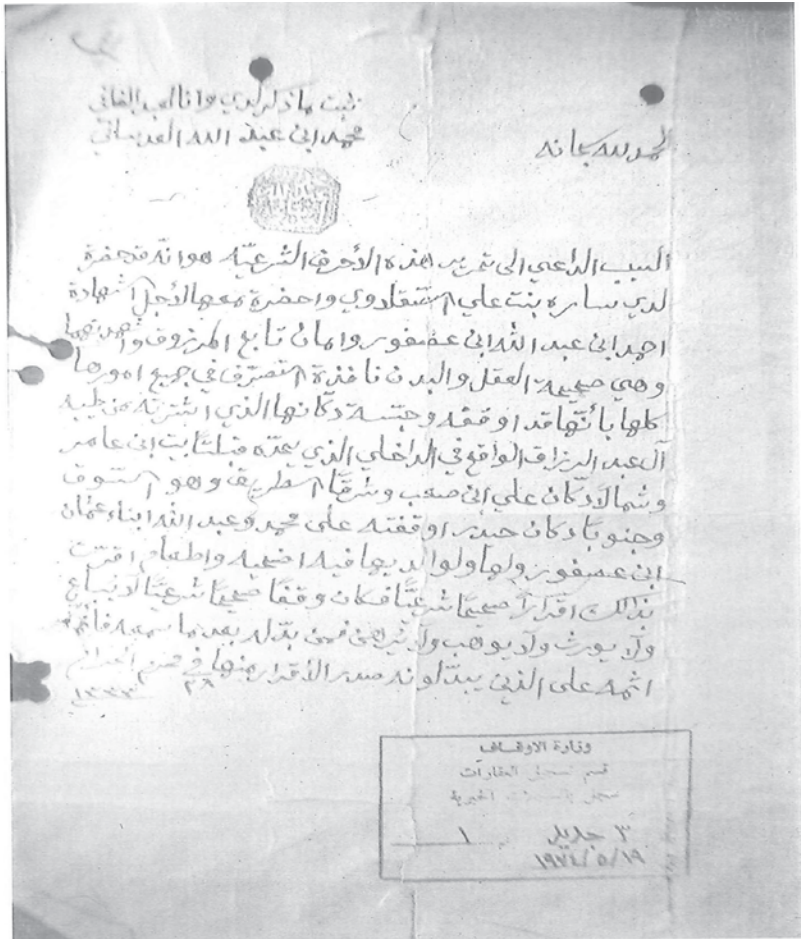 ثبت ما ذكر لدي وانا العبد الفاني
محمد ابن عبد الله العدساني
الحمد لله سبحانه
السبب الداعي الى تحرير هذه الأحرف الشرعيّه هو انّه قد حضرة
لدي ساره بنت علي واحضرة معها لأجل الشهادة
احمد ابن عبد الله ابن عصفور وامان تابع المرزوق واشهدتهما
وهي صحيحة العقل والبدن نافذة التصرّف في جميع امورها
كلها بأنّها قد اوقفه وحبّسة دكّانها الذي اشترته من
آل عبد الرزاق الواقع في الداخلي الذي يحدّه قبلتًا بيت ابن عامر
وشمالا دكّان علي ابن صعب وشرقيًا الطريق وهو السّوق
وجنوبًا دكان حيدر اوقفته على محمد وعبد الله ابناء عثمان
ابن عصفور ولها ولوالديها فيه اضحيه واطعام اقرّت
بذالك اقرارًا صحيحًا شرعيًّا فكان وقفًا صحيحًا شرعيًا لا يباع
ولا يورث ولا يوهب ولا يرهن فمن بدّله بعد ما سمعه فانّما
اثمه على الذين يبدّلونه صدر الأقرار منها في ٢٨ محرم الحرام
١٣٣٣
وزارة الاوقاف
قسم تسجيل العقارات
٣ جديد ١
١٩٧٤/٥/١٩